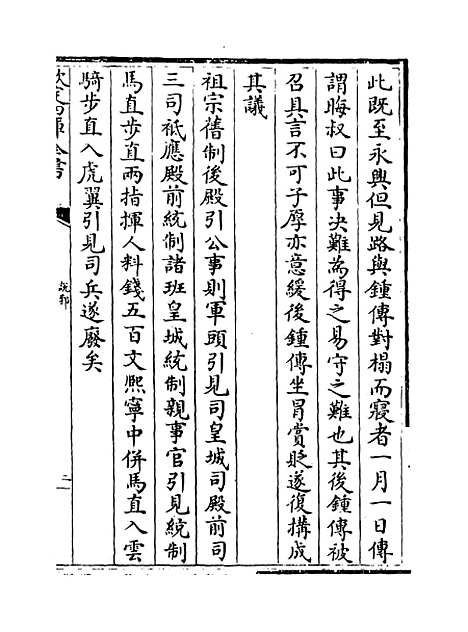 此既至永興但見路與鍾傳對榻而寢者一月一日傳
謂晦叔曰此事決難為得之易守之難也其後鍾傳被
召具言不可子厚亦意緩後鍾傳坐冒賞貶遂復搆成
其議
祖宗舊制後殿引公事則軍頭引見司皇城司殿前司
三司祗應殿前統制諸班皇城統制親事官引見統制
馬直步直兩指揮人料錢五百文熈寧中併馬直入雲
騎步直入虎翼引見司兵遂廢矣
說郛